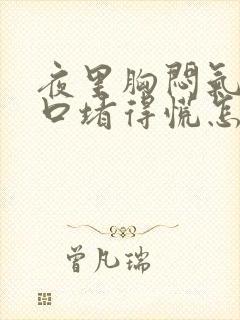 夜里胸闷氣
口堵得慌怎
曾凡瑞